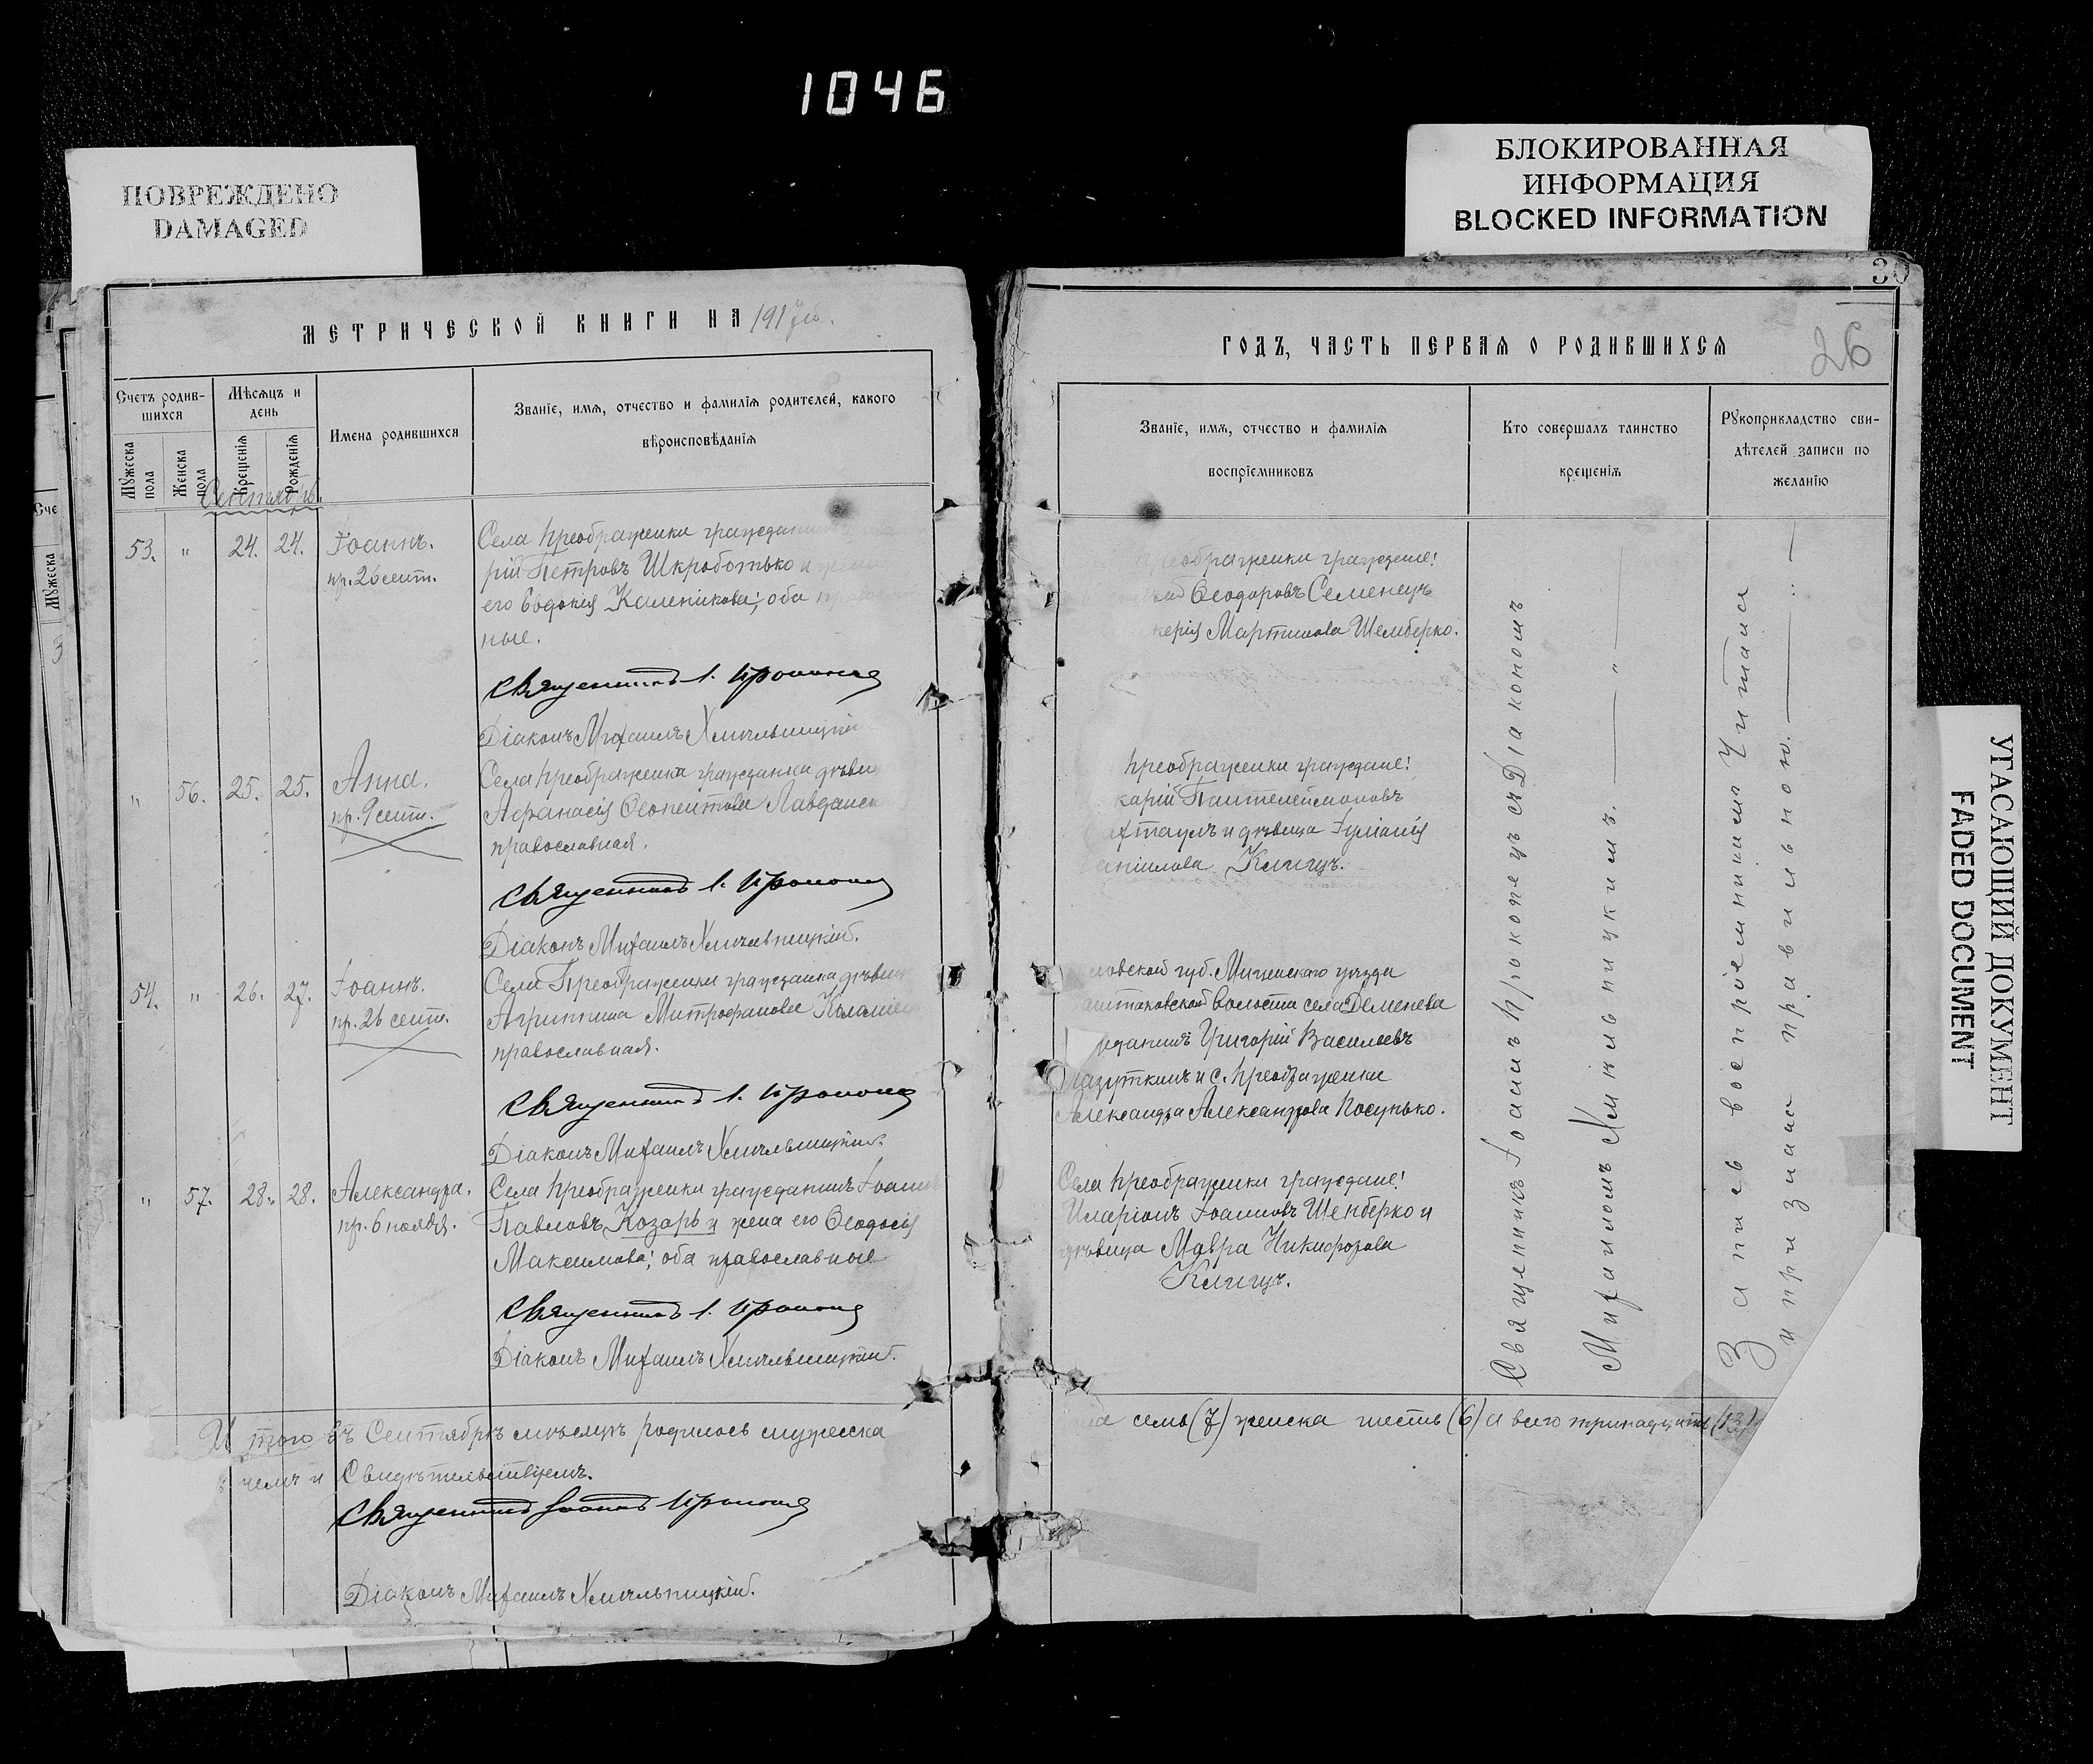 1046
ПОВРЕЖДЕНО
DAMAGED
БЛОКИРОВАННАЯ
ИНФОРМАЦИЯ
BLOCKED INFORMATION
УГАСАЮЩИЙ ДОКУМЕНТ
FADED DOCUMENT
МЕТРИЧЕСКОЙ КНИГИ НА 1917
Счетъ родив-
шихся
Мѣсяцъ и
день
Имена родившихся
Званіе, имя, отчество и фамилія родителей, какого
вѣроисповѣданія
Мужеска
пола
Женска
пола
Крещенія
Рожденія
Сентябрь.
53. " 24. 24. Іоаннъ.
пр. 26 сент.
Села Преображенки
рій Петровъ Шкроботько и жена
его Евдокія Каленикова; оба
ные.
Священникъ І. Прокопецъ
Діаконъ Михаилъ Хмѣльницкій
" 56. 25. 25. Анна.
пр. 9 сент.
Села Преображенки гражданка дѣвица
Аѳанасія Леонтіева
православная.
Священникъ І. Прокопецъ
Діаконъ Михаилъ Хмѣльницкій.
54. " 26. 27. Іоаннъ.
пр. 26 сент.
Села Преображенки гражданка дѣвица
Агриппина Митрофанова
православная.
Священникъ І. Прокопецъ
Діаконъ Михаилъ Хмѣльницкій.
" 57. 28. 28. Александра.
пр. 6 ноября.
Села Преображенки гражданинъ Іоаннъ
Павловъ Козарь и жена его Ѳеодосія
Максимова; оба православные
Священникъ І. Прокопецъ
Діаконъ Михаилъ Хмѣльницкій.
Итого въ Сентябрѣ мѣсяцѣ родилось мужеска
въ чемъ и Свидѣтельствуемъ.
Священникъ Іоаннъ Прокопецъ
Діаконъ Михаилъ Хмѣльницкій.
30
26
ГОДЪ, ЧАСТЬ ПЕРВАЯ О РОДИВШИХСЯ
Званіе, имя, отчество и фамилія
воспріемниковъ
Кто совершалъ таинство
крещенія
Рукоприкладство сви-
дѣтелей записи по
желанію
Преображенки граждане:
Ѳеодоровъ Семенецъ
керія Мартинова Шемберко.
Преображенки граждане:
карій Пантелеймоновъ
и дѣвица Іуліанія
Клигуч.
губ. уѣзда
волости села Деменева
Григорій Васильевъ
и с. Преображенки
Александра Александрова Посунько.
Села Преображенки граждане:
Иларіонъ Іоанновъ Шемберко и
дѣвица Мавра Никифорова
Клигуч.
Священникъ Іоаннъ Прокопецъ съ Діакономъ
Михаиломъ Хмѣльницкимъ. — " —
Запись воспріемникамъ читана
и признана правильною.
семь (7) женска шесть (6) а всего тринадцать (13)